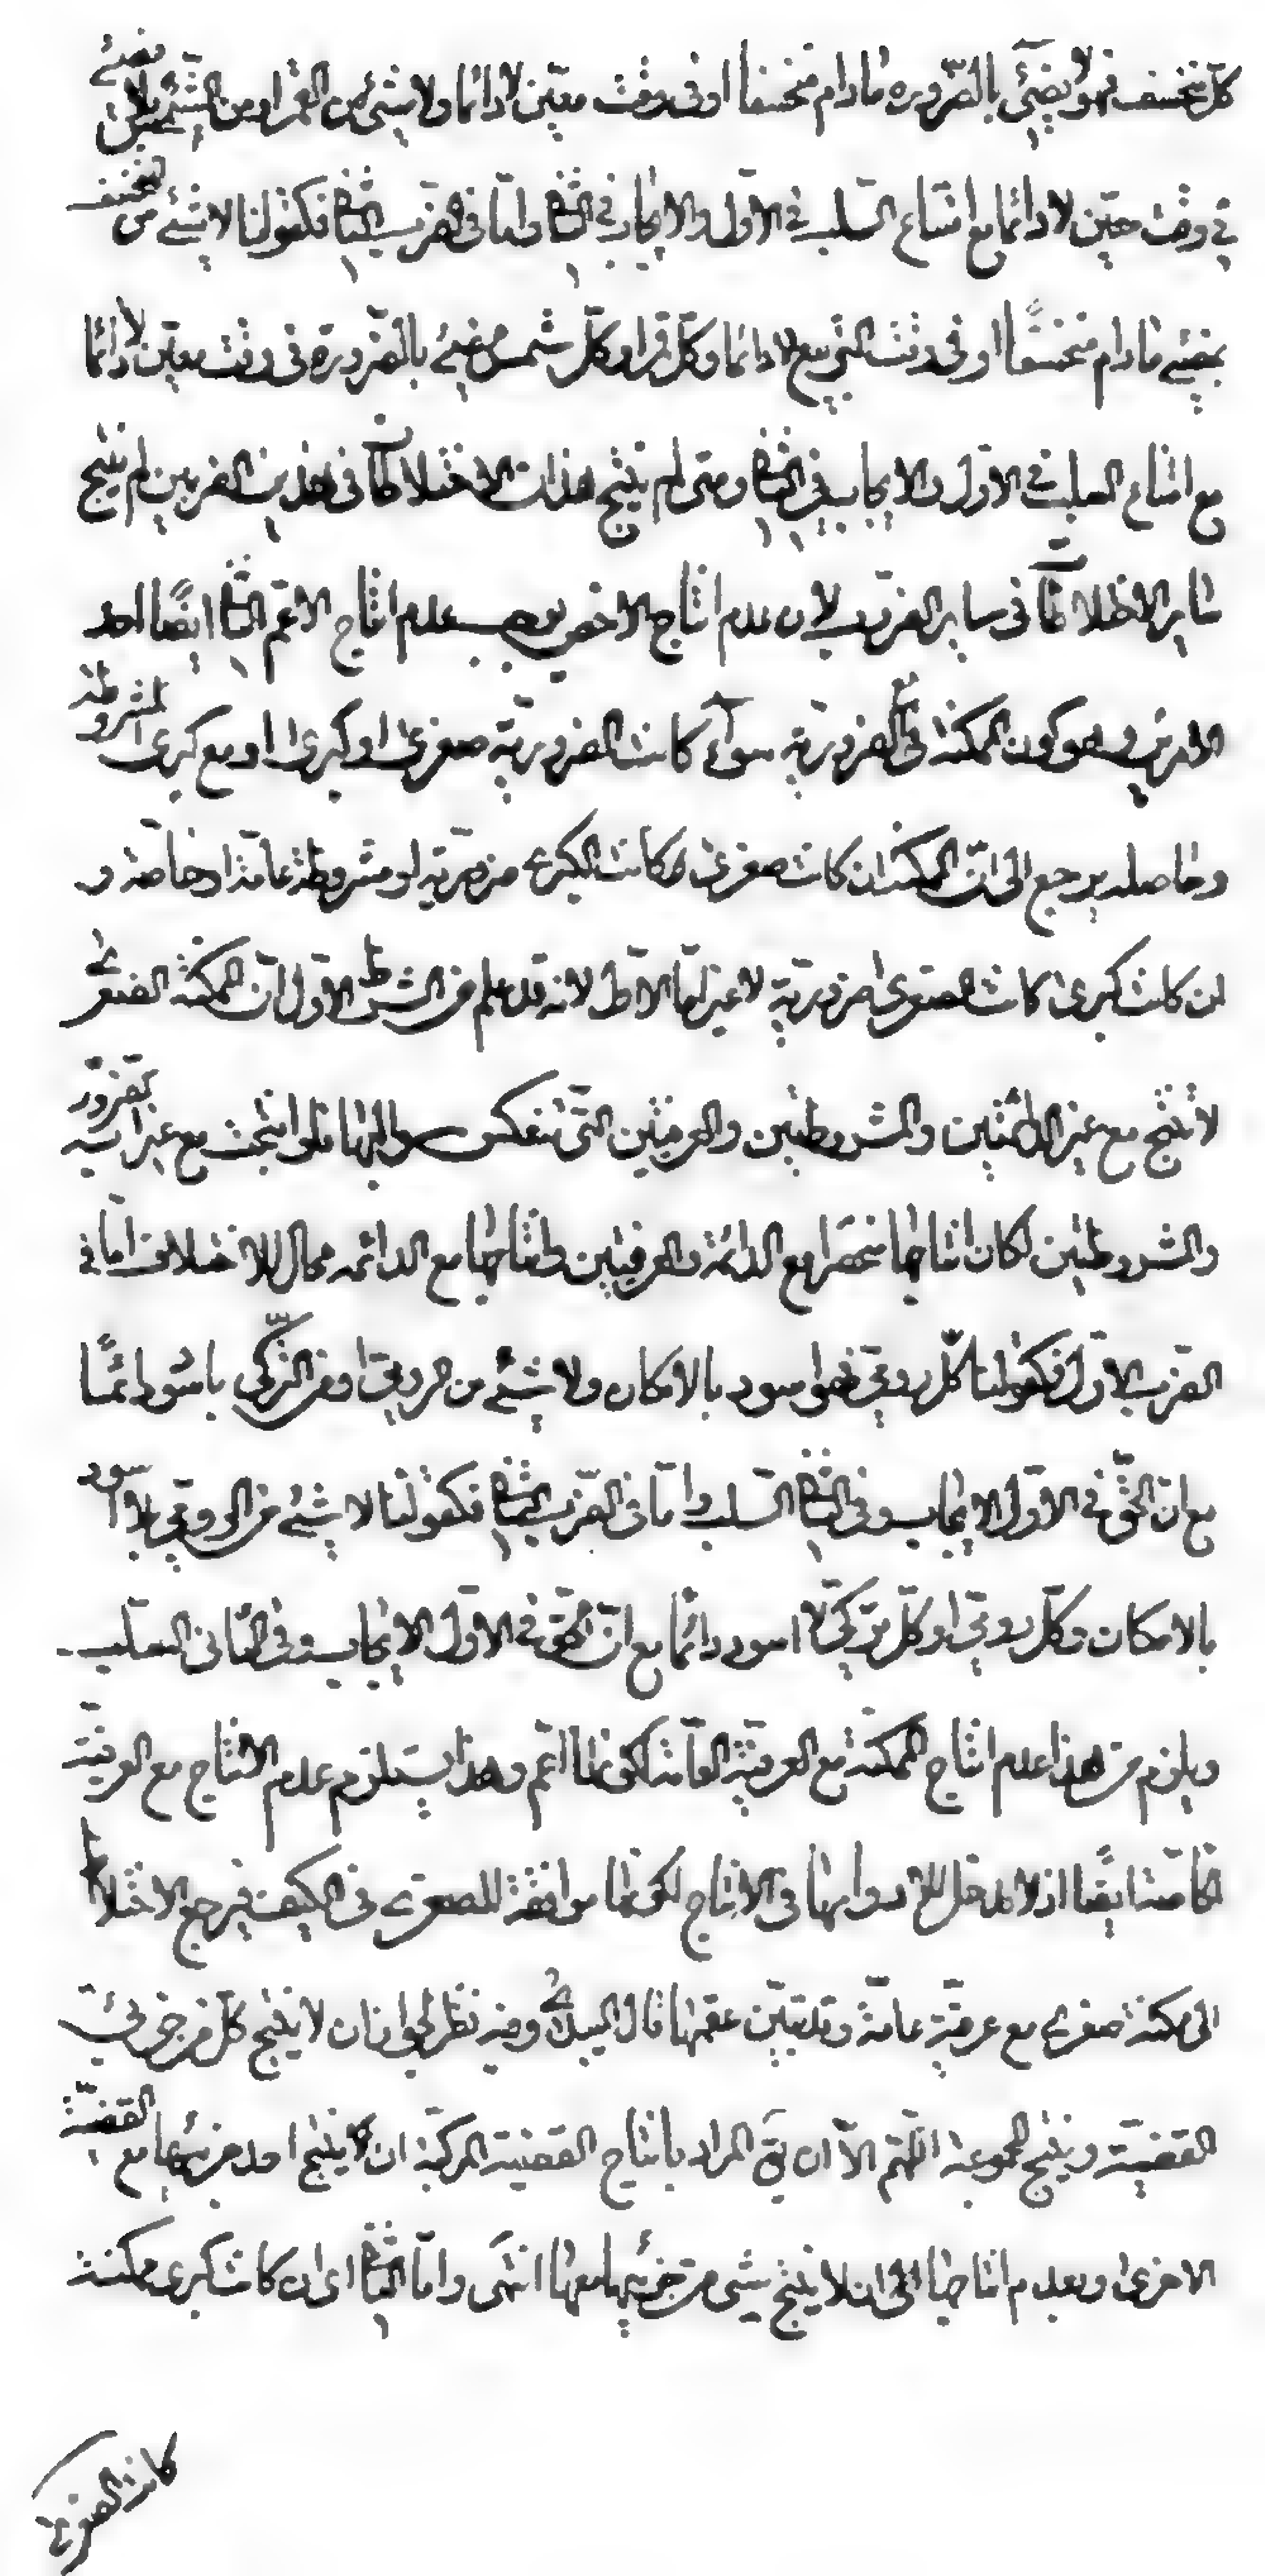 كل منخسف فهو لا يضئ بالضرورة مادام منخسفا او فى وقت معين لا دائما ولا شئ من القمر او من الشمس بلا مضئ
في وقت معين لا دائما مع امتناع السلب في الاول والايجاب في الثانى واما فى الضرب الثانى فكقولنا لا شئ من المنخسف
بمضئ مادام منخسفًا او فى وقت التربيع لا دائما وكل قمر او كل شمس مضئ بالضرورة فى وقت معين لا دائما
مع امتناع السلب في الاول والايجاب في الثانى ومتى لم ينتج هذان الاختلاطان فى هذين الضربين لم ينتج
سائر الاختلاطات فى ساير الضروب لان عدم انتاج الاخص يوجب عدم انتاج الاعم الثانى ايضًا احد
الامرين وهو كون الممكنة مع الضرورية سواء كانت الضرورية صغرى او كبرى او مع كبرى المشروطة
وحاصله يرجع الى ان الممكنة ان كانت صغرى كانت الكبرى ضرورية او مشروطة عامة او خاصة و
ان كانت كبرى كانت الصغرى ضرورية لا غير اما الاول لانه قد علم من الشرط الاول ان الممكنة الصغرى
لا تنتج مع غير الدائمتين والمشروطتين والعرفيتين التى تنعكس سوالبها فلو انتجت مع غير الضرورية
والمشروطتين لكان انتاجها منحصرا مع الدائمة والعرفيتين وانتاجها مع الدائمه محال للاختلاف اما فى
الضرب الاول فكقولنا كل رومى فهو اسود بالامكان ولا شئ من الرومى او من التركى باسود دائمًا
مع ان الحق في الاول الايجاب وفى الثانى السلب واما فى الضرب الثانى فكقولنا لا شئ من الرومى باسود
بالامكان وكل رومى او كل تركى اسود دائما مع ان الحق في الاول الايجاب وفى الثانى السلب
ويلزم من هذا عدم انتاج الممكنة مع العرفية العامة لكونها اعم وهذا يستلزم عدم الانتاج مع العرفية
الخاصة ايضًا اذ لا مدخل للادوامها فى الانتاج لكونها موافقة للصغرى فى الكيف فيرجع الاختلاط
الى ممكنة صغرى مع عرفية عامة وقد تبين عقمها قال السيد وفيه نظر لجواز ان لا ينتج كل من جزئى
القضية وينتج المجموعة اللهم الا ان يق المراد بانتاج القضية المركبة ان ينتج احد جزئيها مع القضية
الاخرى وبعدم انتاجها ان لا ينتج شى من جزئيها معها انتهى واما الثانى اى ان كانت كبرى ممكنة
كانت الصغرى